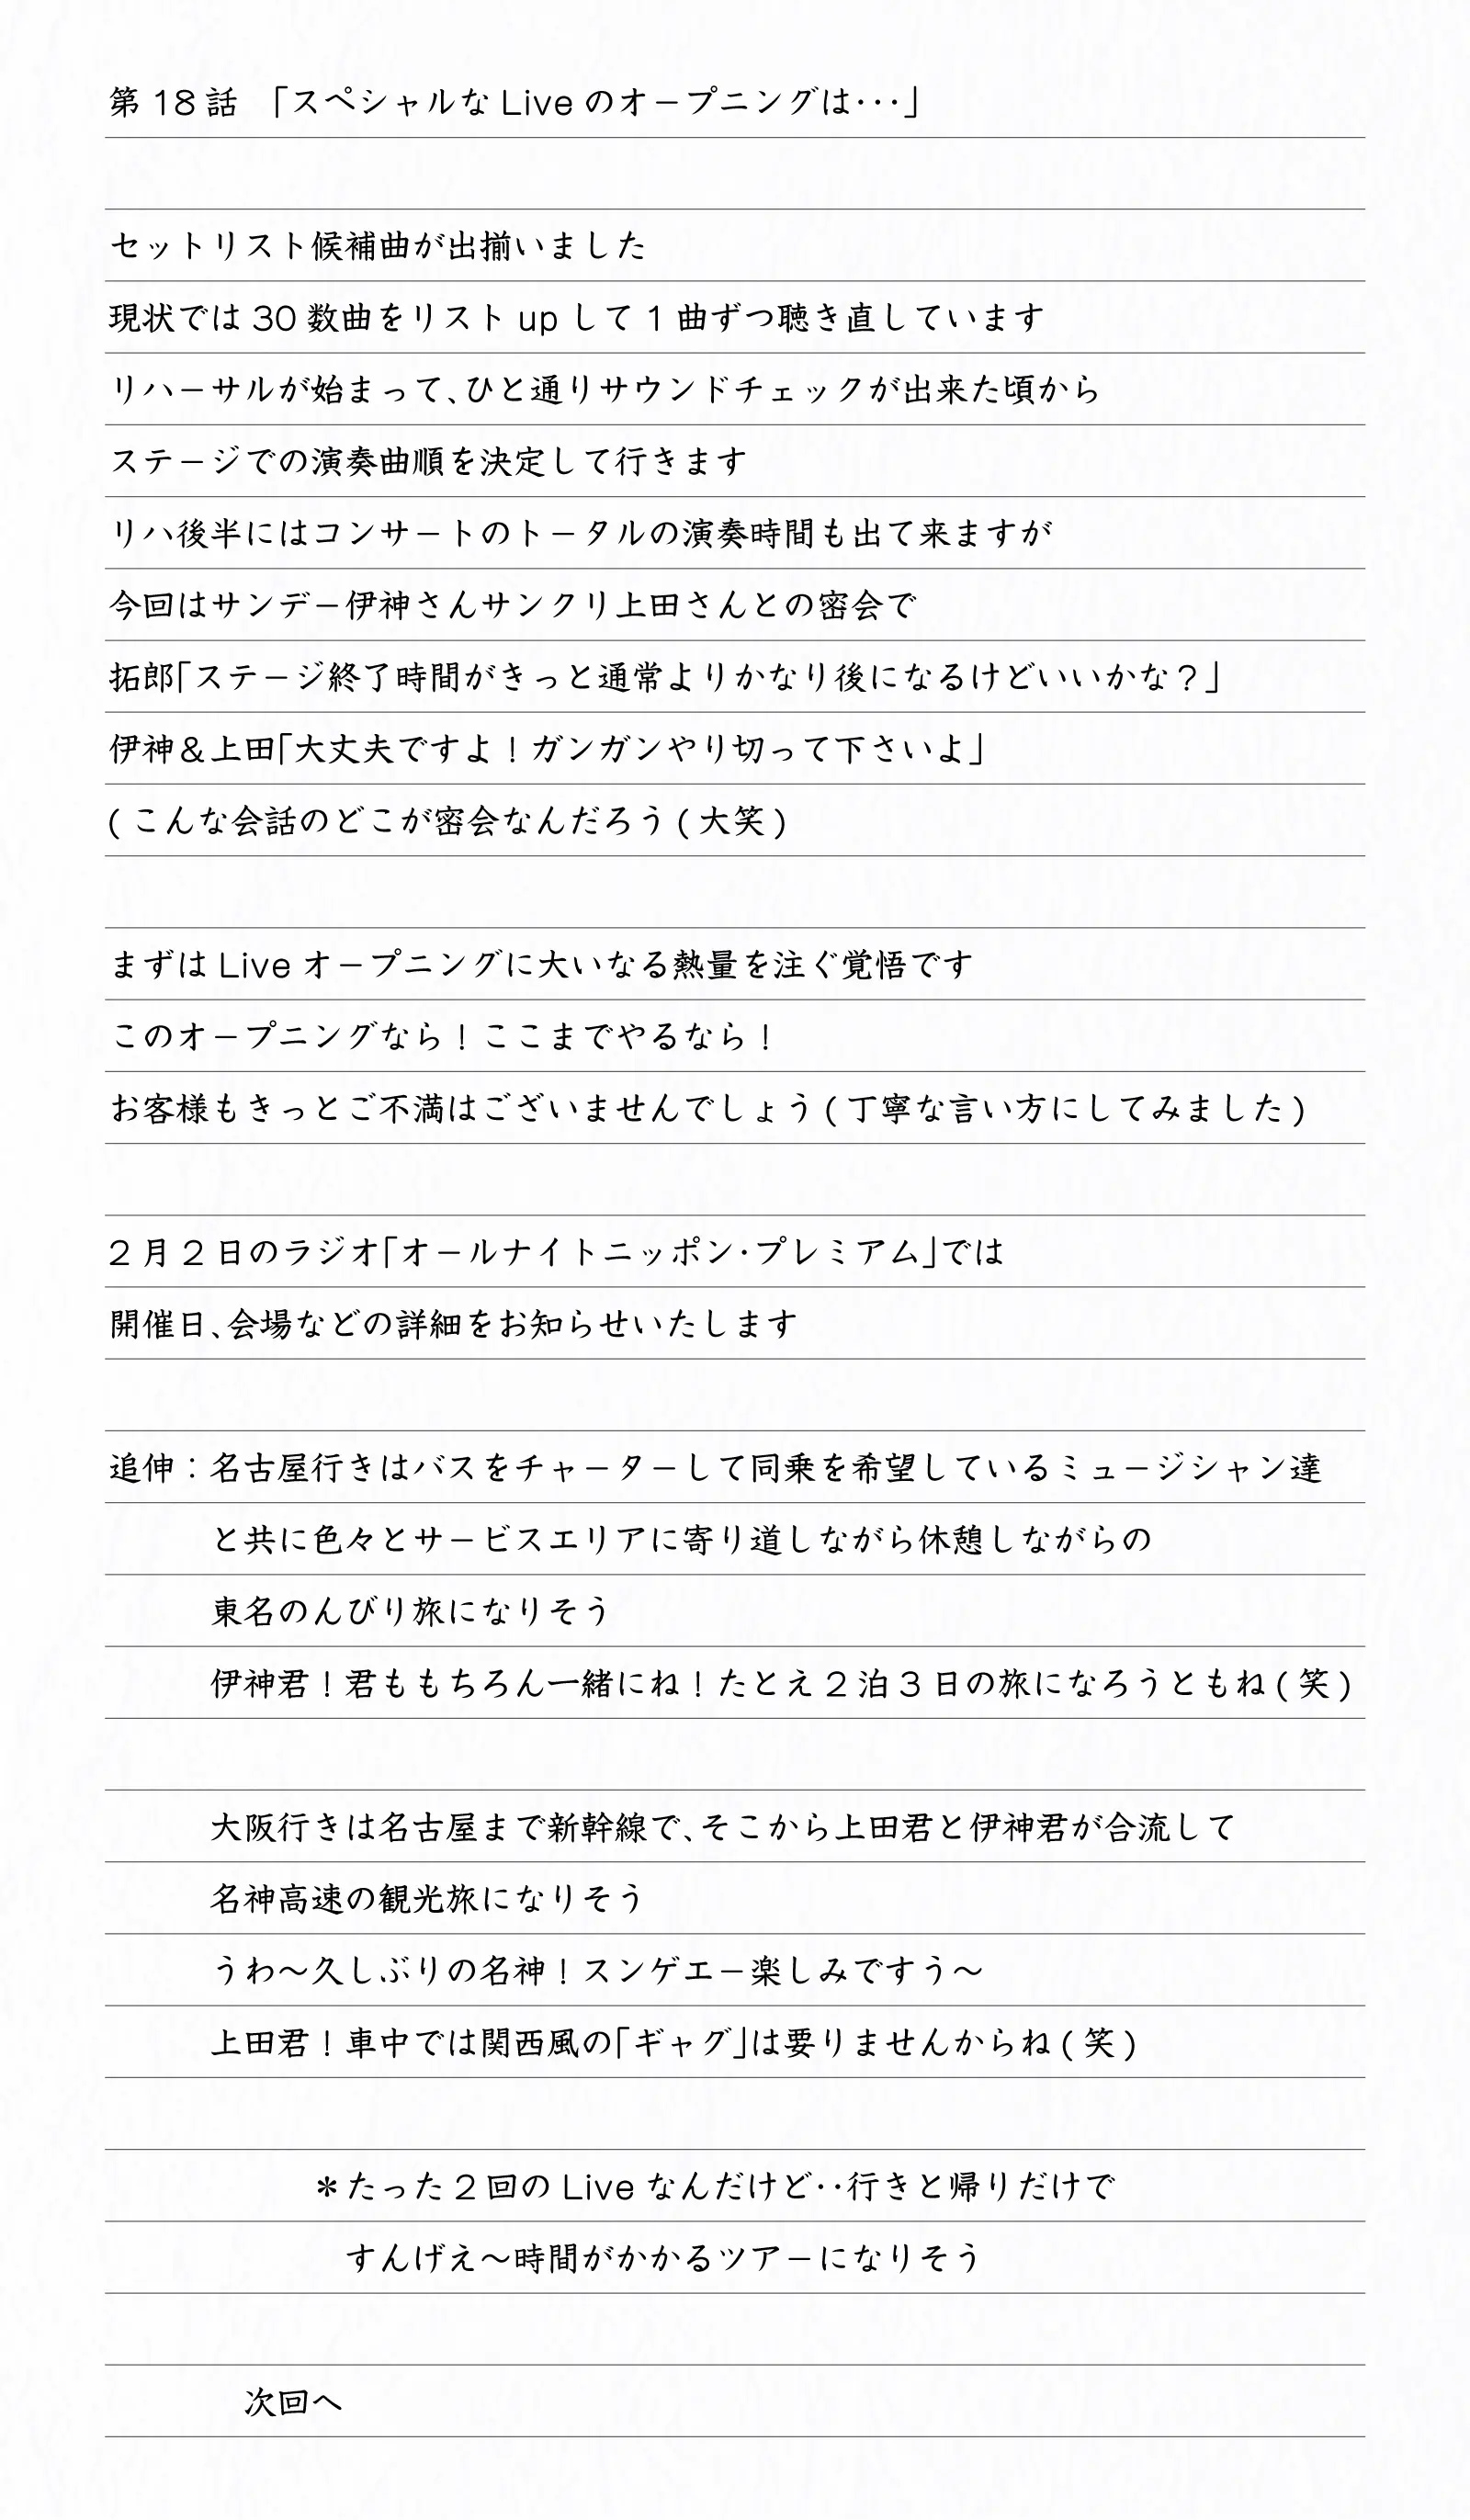 第18話　「スペシャルなLiveのオープニングは･･･」
セットリスト候補曲が出揃いました
現状では30数曲をリストupして1曲ずつ聴き直しています
リハーサルが始まって､ひと通りサウンドチェックが出来た頃から
ステージでの演奏曲順を決定して行きます
リハ後半にはコンサートのトータルの演奏時間も出て来ますが
今回はサンデー伊神さんサンクリ上田さんとの密会で
拓郎｢ステージ終了時間がきっと通常よりかなり後になるけどいいかな？｣
伊神＆上田｢大丈夫ですよ！ガンガンやり切って下さいよ｣
(こんな会話のどこが密会なんだろう(大笑)
まずはLiveオープニングに大いなる熱量を注ぐ覚悟です
このオープニングなら！ここまでやるなら！
お客様もきっとご不満はございませんでしょう(丁寧な言い方にしてみました)
2月2日のラジオ｢オールナイトニッポン･プレミアム｣では
開催日､会場などの詳細をお知らせいたします
追伸：名古屋行きはバスをチャーターして同乗を希望しているミュージシャン達
と共に色々とサービスエリアに寄り道しながら休憩しながらの
東名のんびり旅になりそう
伊神君！君ももちろん一緒にね！たとえ2泊3日の旅になろうともね(笑)
大阪行きは名古屋まで新幹線で､そこから上田君と伊神君が合流して
名神高速の観光旅になりそう
うわ～久しぶりの名神！スンゲエー楽しみですう～
上田君！車中では関西風の｢ギャグ｣は要りませんからね(笑)
＊たった2回のLiveなんだけど･･行きと帰りだけで
すんげえ～時間がかかるツアーになりそう
次回へ